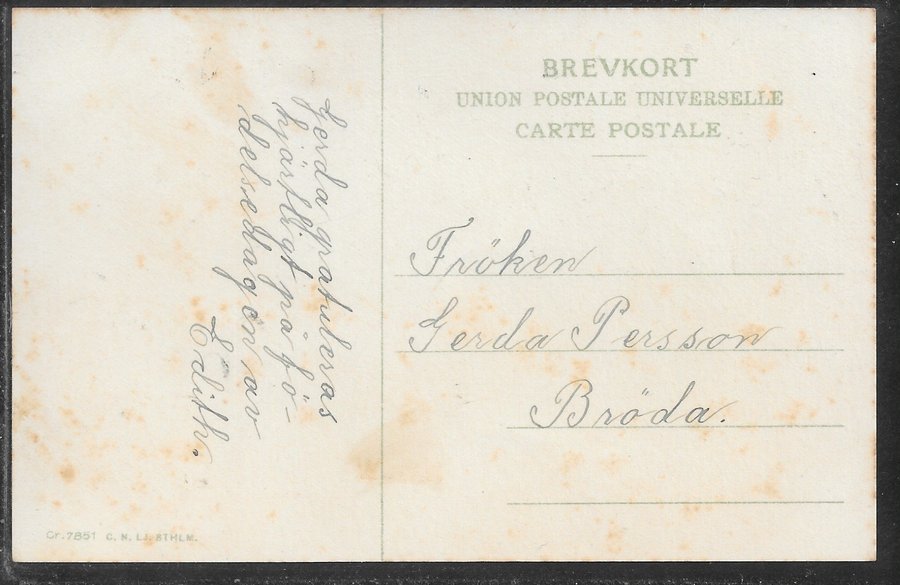 BREVKORT
UNION POSTALE UNIVERSELLE
CARTE POSTALE
Gerda gratuleras
hjärtligt på fö-
delsedagen av
Edith.
Fröken
Gerda Persson
Bröda.
Gr. 7851 C. N. LJ. STHLM.